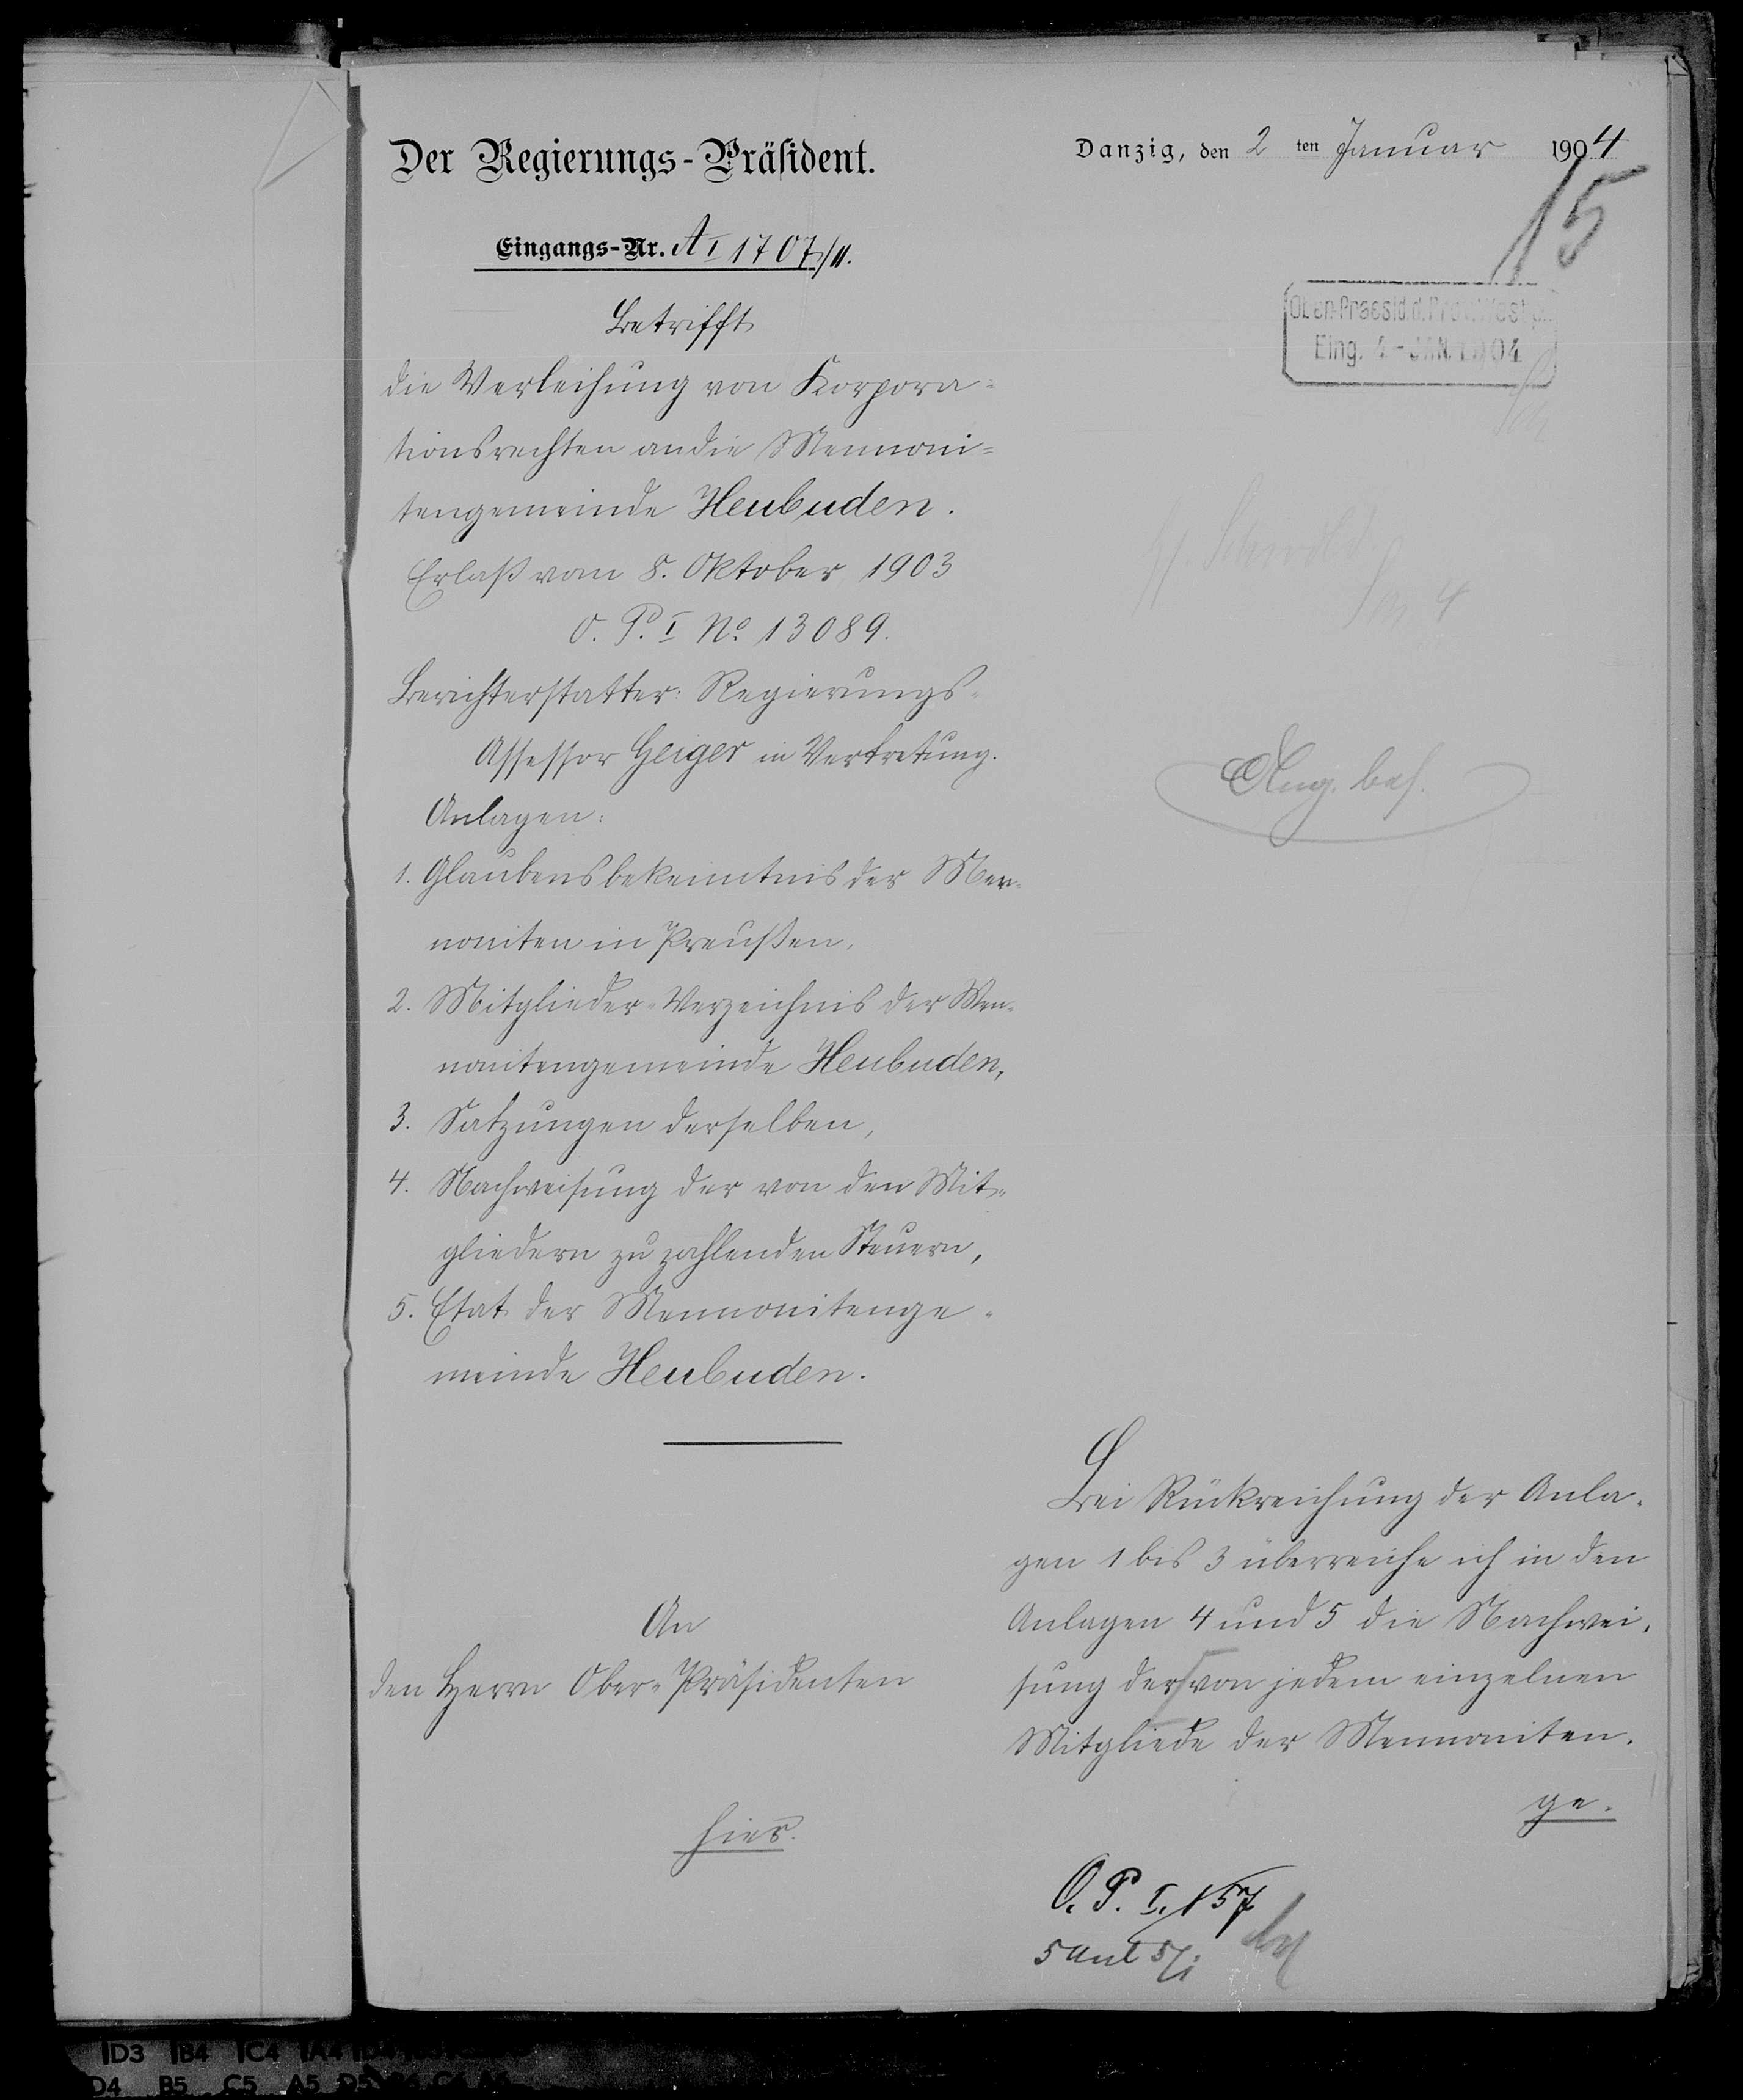 Der Regierungs-Präsident.
Danzig, den 2 ten Januar 1904
15
Eingangs-Nr. A I 1707/11.
Ober-Praesid. d. Prov. Westpr.
Eing. 4 - JAN. 1904
Betrifft
die Verleihung von Korpora=
tionsrechten an die Mennoni=
tengemeinde Heubuden.
Erlaß vom 8. Oktober 1903
O. P. I No. 13089.
Berichterstatter: Regierungs-
Assessor Geiger in Vertretung.
Anlagen:
1. Glaubensbekenntnis der Men-
noniten in Preußen,
2. Mitglieder-Verzeichnis der Men-
nonitengemeinde Heubuden,
3. Satzungen derselben,
4. Nachweisung der von den Mit-
gliedern zu zahlenden Steuern,
5. Etat der Mennonitenge-
meinde Heubuden.
Ang. bes.
An
den Herrn Ober-Präsidenten
hier.
Bei Rückreichung der Anla-
gen 1 bis 3 überreiche ich in den
Anlagen 4 und 5 die Nachwei-
sung der von jedem einzelnen
Mitgliede der Mennoniten-
ge-
O. P. I. 157
5 Anl 5/1
D3 B4 C4 A4
D4 B5 C5 A5 D5